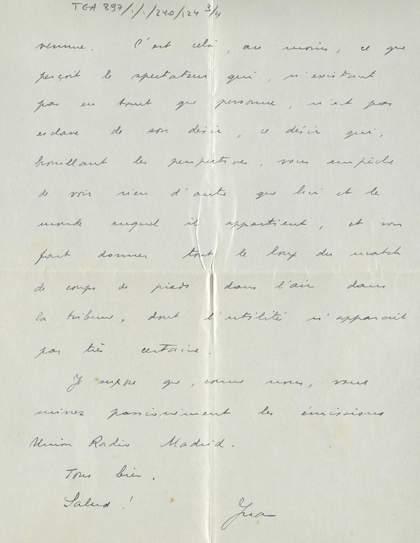 TGA 897/1/1/240/124 3/4
venue. C'est cela, au moins, ce que
perçoit le spectateur qui, n'existant
pas en tant que personne, n'est pas
esclave de son désir, ce désir qui,
brouillant les perspectives, vous empêche
de voir rien d'autre que lui et le
monde auquel il appartient, et vous
fait donner tout le long des match
de coups de pieds dans l'air dans
la tribune, dont l'utilité n'apparait
pas très certaine.
Je suppose que, comme nous, vous
suivez passionément les émissions
Union Radio Madrid.
Tous bien.
Salud!